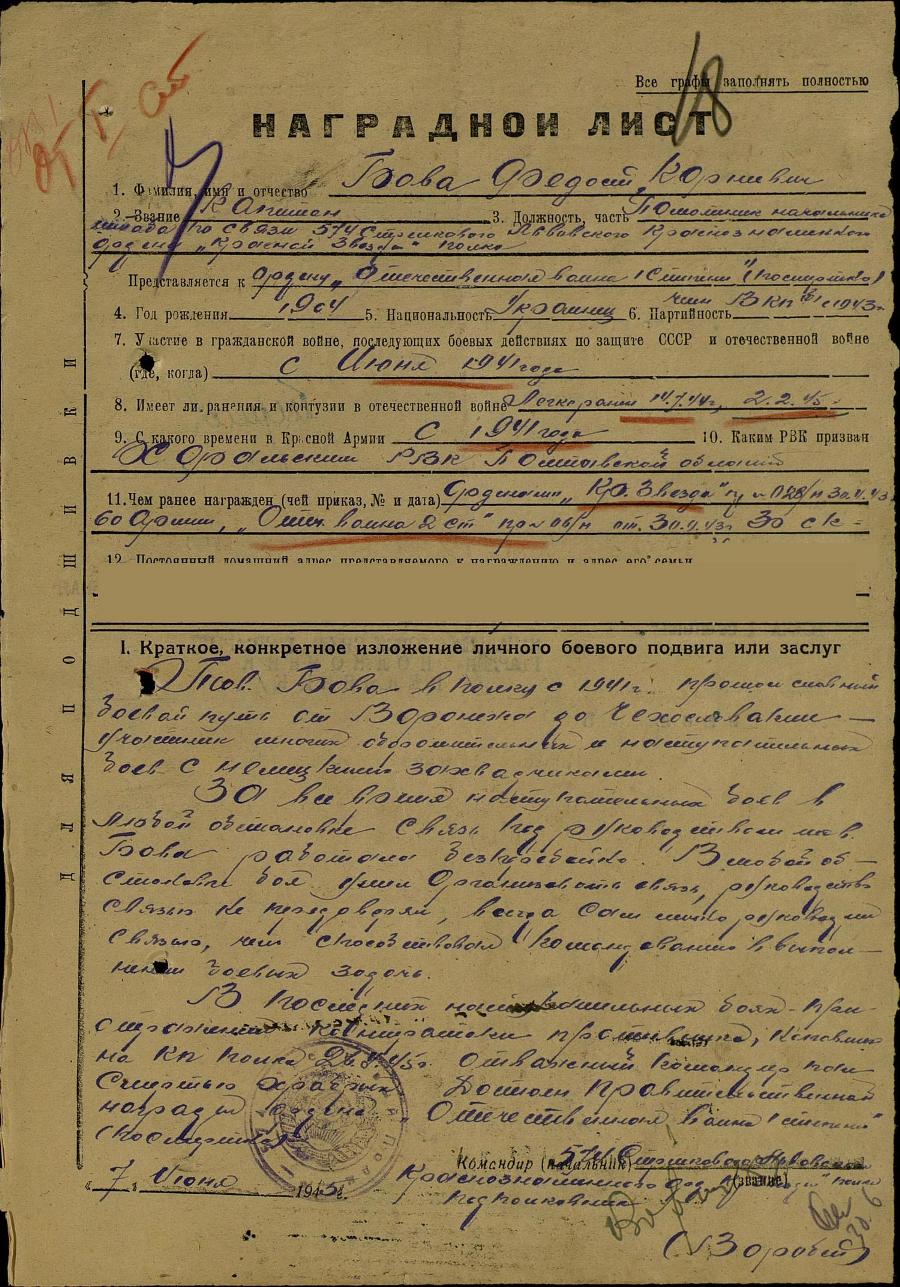 Все графы заполнять полностью
18
НАГРАДНОЙ ЛИСТ
1. Фамилия, имя и отчество Бова Федост Корнеевич
2. Звание Капитан 3. Должность, часть Помощник начальника
штаба по связи 574 Стрелкового Львовского Краснознаменного
ордена „Красной Звезды" полка
Представляется к ордену „Отечественная война 1 степени" (посмертно)
4. Год рождения 1904 5. Национальность Украинец 6. Партийность член ВКП(б) с 1943г.
7. Участие в гражданской войне, последующих боевых действиях по защите СССР и отечественной войне
(где, когда) с Июня 1941 года
8. Имеет ли ранения и контузии в отечественной войне Легко ранен 14.7.44г., 2.2.45г.
9. С какого времени в Красной Армии с 1941 года 10. Каким РВК призван
Хорольским РВК Полтавской области
11. Чем ранее награжден (чей приказ, № и дата) Орденами „Кр. Звезда"
60 Армии, „Отеч. война 2 ст" пр. 30 ск
12. Постоянный домашний адрес представляемого к награждению и адрес его семьи
ДЛЯ ПОДШИВКИ
I. Краткое, конкретное изложение личного боевого подвига или заслуг
Тов. Бова в полку с 1941г. прошел славный
боевой путь от Воронежа до Чехословакии –
участник многих оборонительных и наступательных
боев с немецкими захватчиками.
За все время наступательных боев в
любой обстановке связь под руководством тов.
Бова работала безперебойно. В любой об-
становке боя умел организовать связь, руководство
связью не передоверял, всегда сам лично руководил
связью, чем способствовал командованию в выпол-
нении боевых задач.
В последних наступательных боях при
отражении контратаки противника,
на КП полка отважный командир пал
смертью храбрых. Достоин Правительственной
награды ордена „Отечественная война 1 степени"
(посмертно).
Командир (начальник) 574 Стрелкового Львовского
Краснознаменного орд. полка
(звание)
подполковник
„7" Июня 1945г.
(Воробьев)